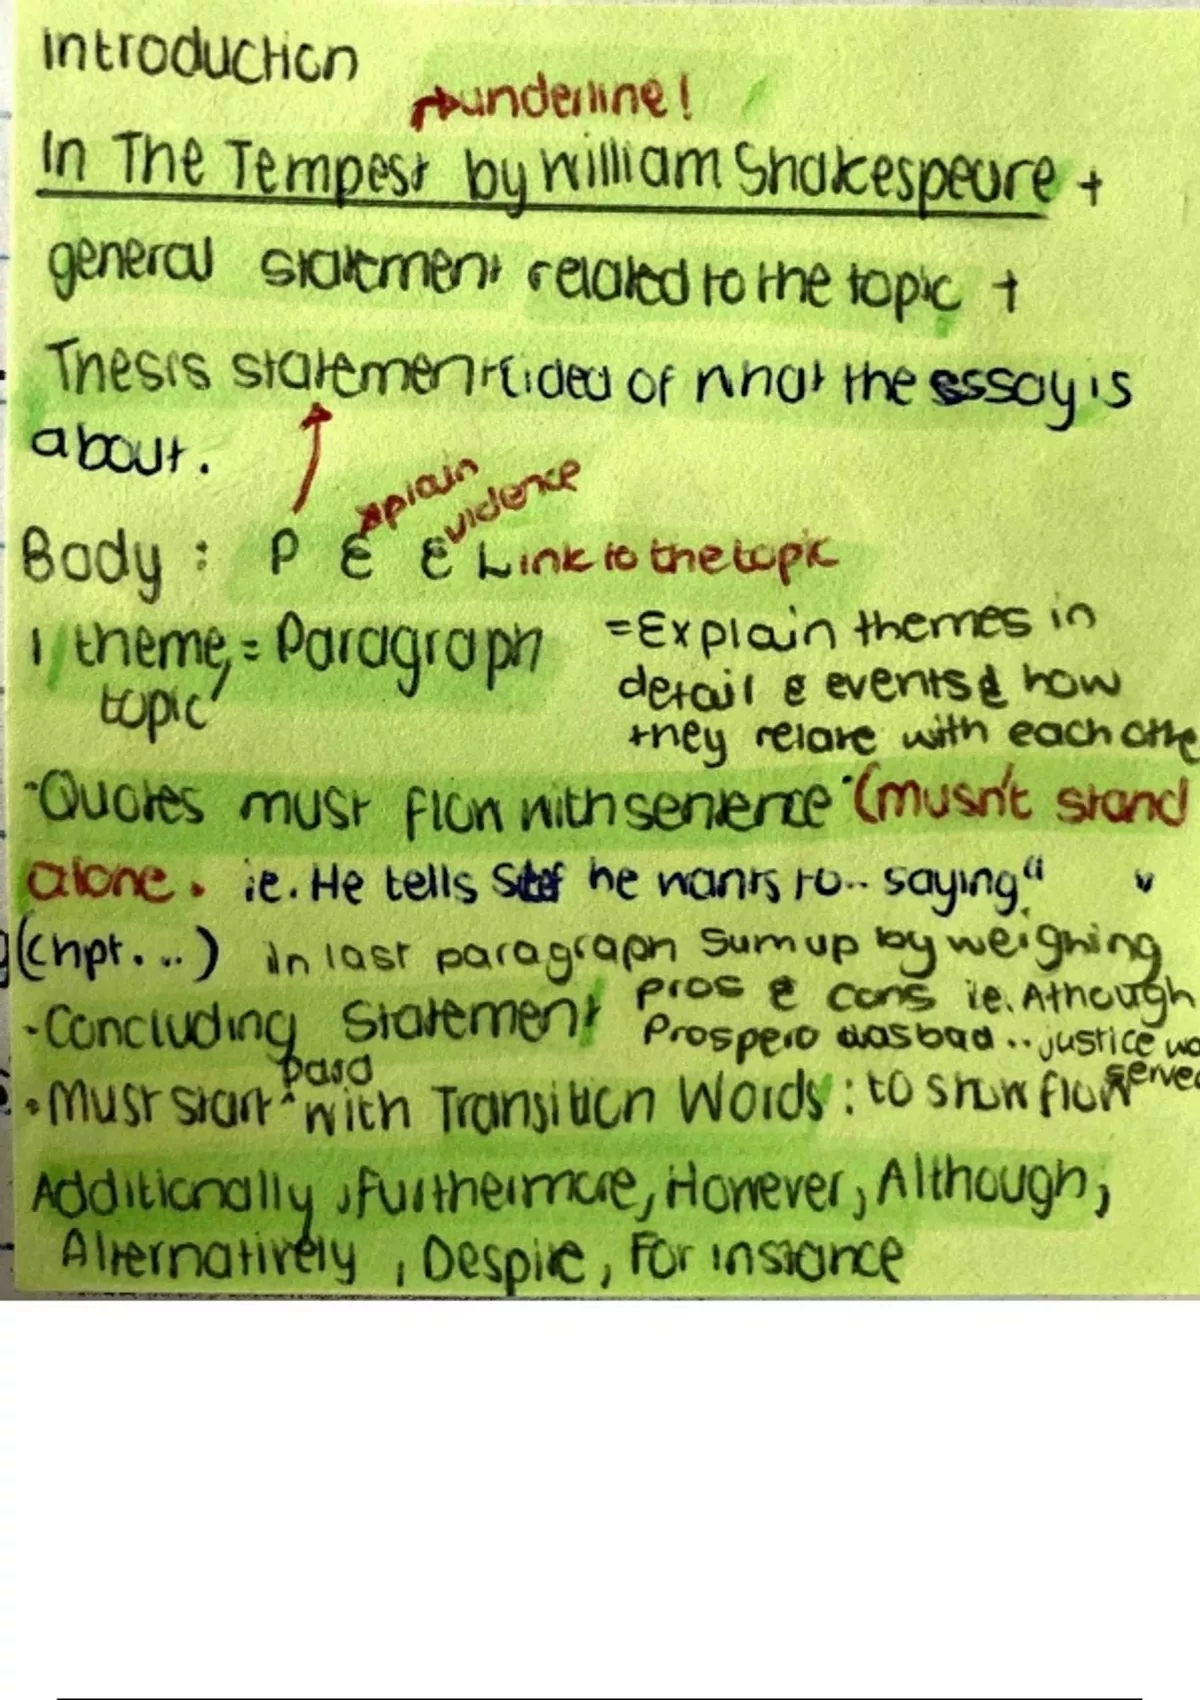 Introduction
→underline!
In The Tempest by William Shakespeare +
general statement related to the topic +
Thesis statement (idea of what the essay is
about.
Body : P Explain Evidence Link to the topic
1 theme, = Paragraph
topic
=Explain themes in
detail & events & how
they relate with each othe
-Quotes must flow with sentence (musn't stand
alone. ie. He tells Stef he wants to.. saying " "
(chpt. ...) in last paragraph sum up by weighing
pros & cons ie. Athough
Prospero was bad .. justice wa
serve
-Concluding Statement
para
•Must start ^ with Transition Words : to show flow
Additionally, Furthermore, However, Although,
Alternatively, Despite, For instance